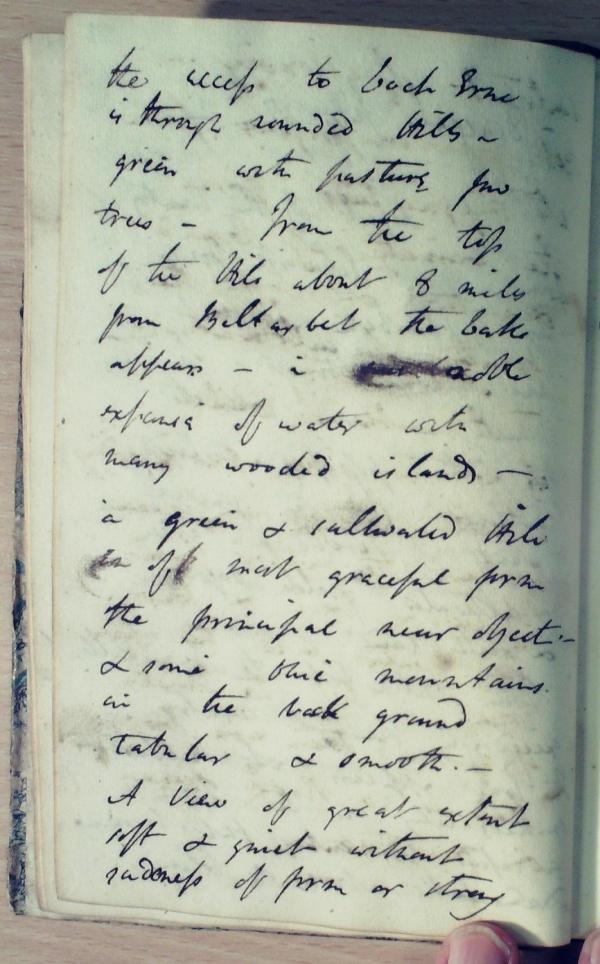 the access to Loch Erne
is through rounded Hills -
green with pasture few
trees - From the top
of the Hills about 8 miles
from Belturbet the Lake
appears - a noble
expanse of water with
many wooded islands -
a green & cultivated Hill
of most graceful form
the principal near object. -
& some blue mountains
in the back ground
tabular & smooth. -
A view of great extent
soft & quiet without
rudeness of form or strong